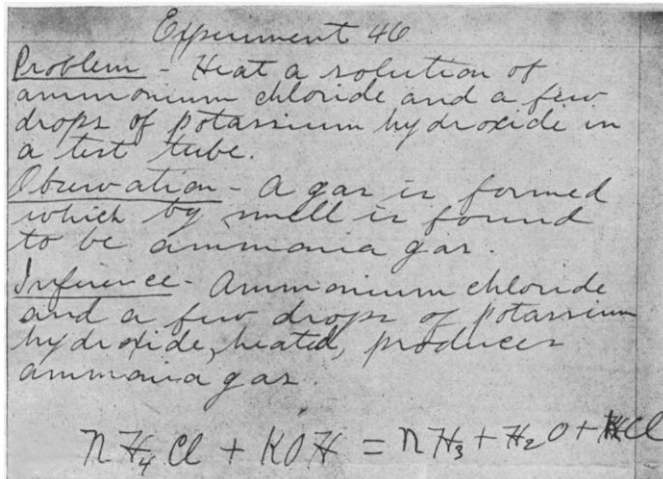 Experiment 46
Problem - Heat a solution of
ammonium chloride and a few
drops of potassium hydroxide in
a test tube.
Observation - A gas is formed
which by smell is found
to be ammonia gas.
Inference - Ammonium chloride
and a few drops of potassium
hydroxide, heated, produces
ammonia gas.
NH₄Cl + KOH = NH₃ + H₂O + KCl